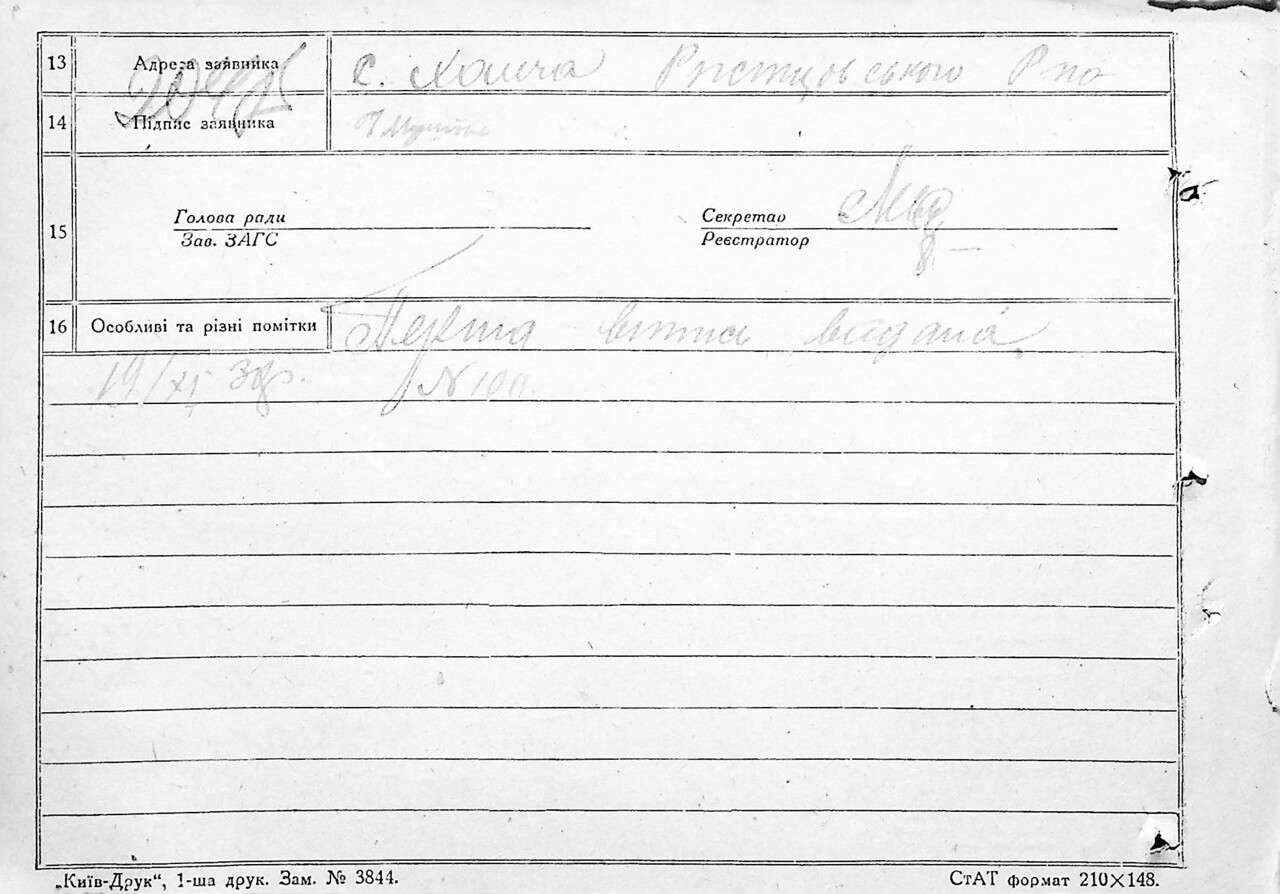 13 Адреса заявника с. Халча Ржищівського Р-ну
14 Підпис заявника
15 Голова ради Секретар
Зав. ЗАГС Реєстратор
16 Особливі та різні помітки Перша випись видана
19/XI 38р. N 100.
„Київ-Друк“, 1-ша друк. Зам. № 3844. СтАТ формат 210×148.